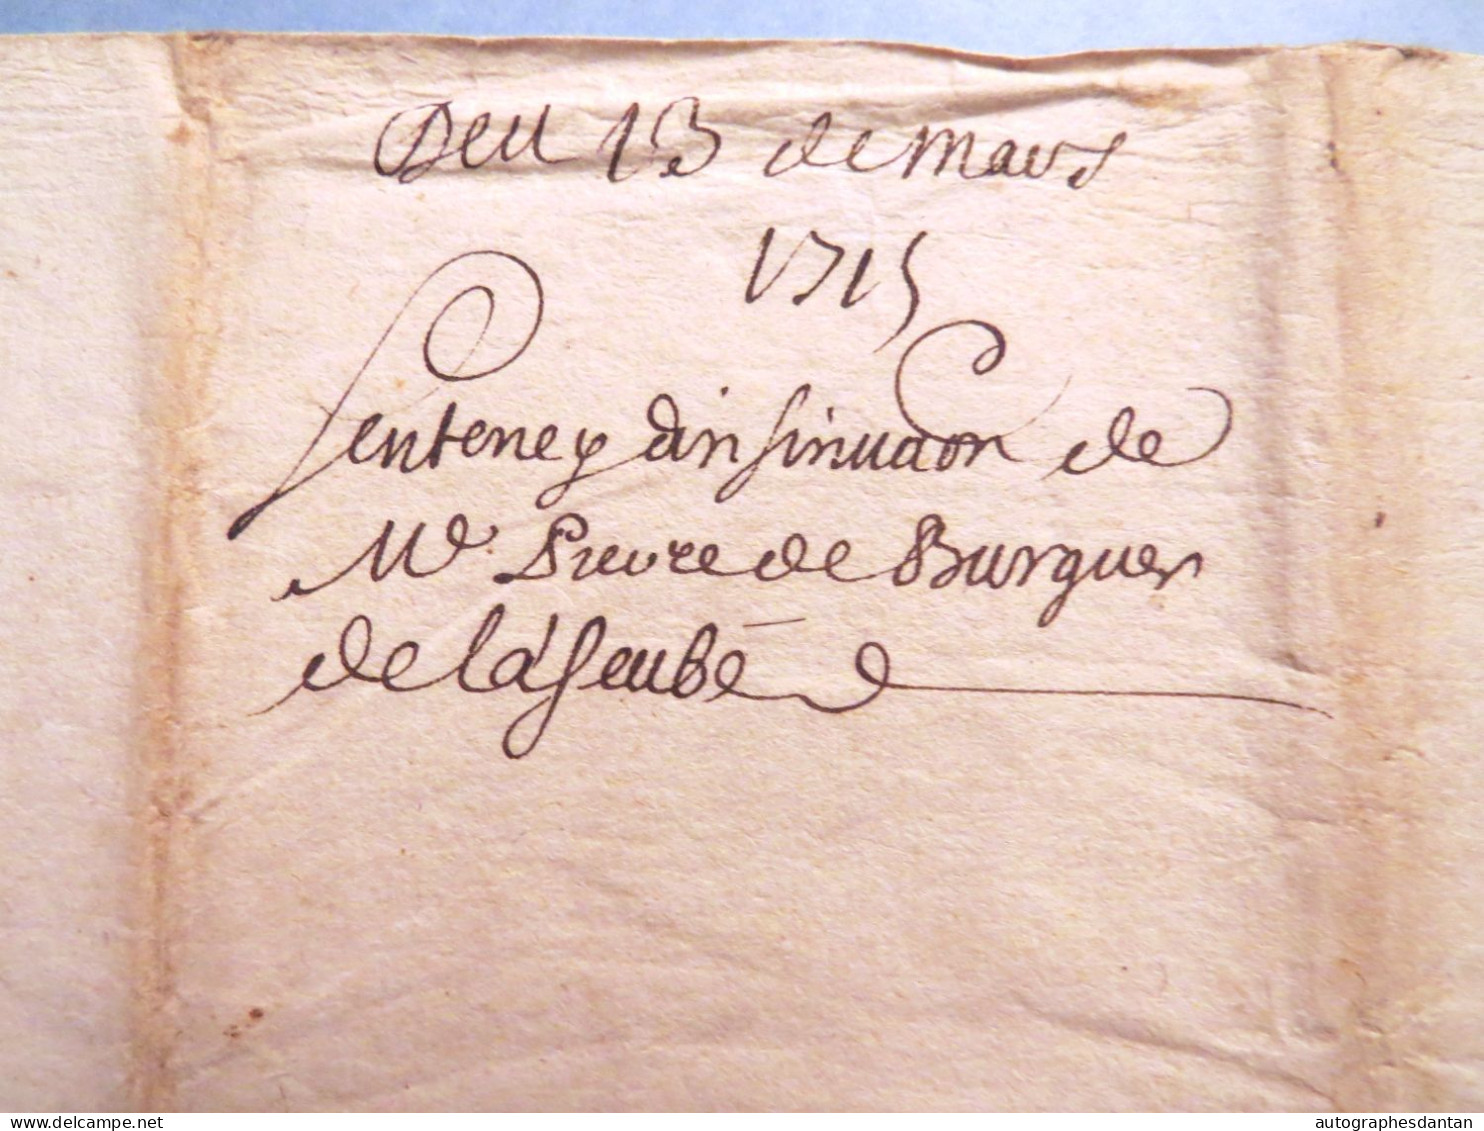 Deu 13 de mars
1715
Sentene y dinsinuaon de
Me Pierre de Burgues
de laseube
autographesdantan